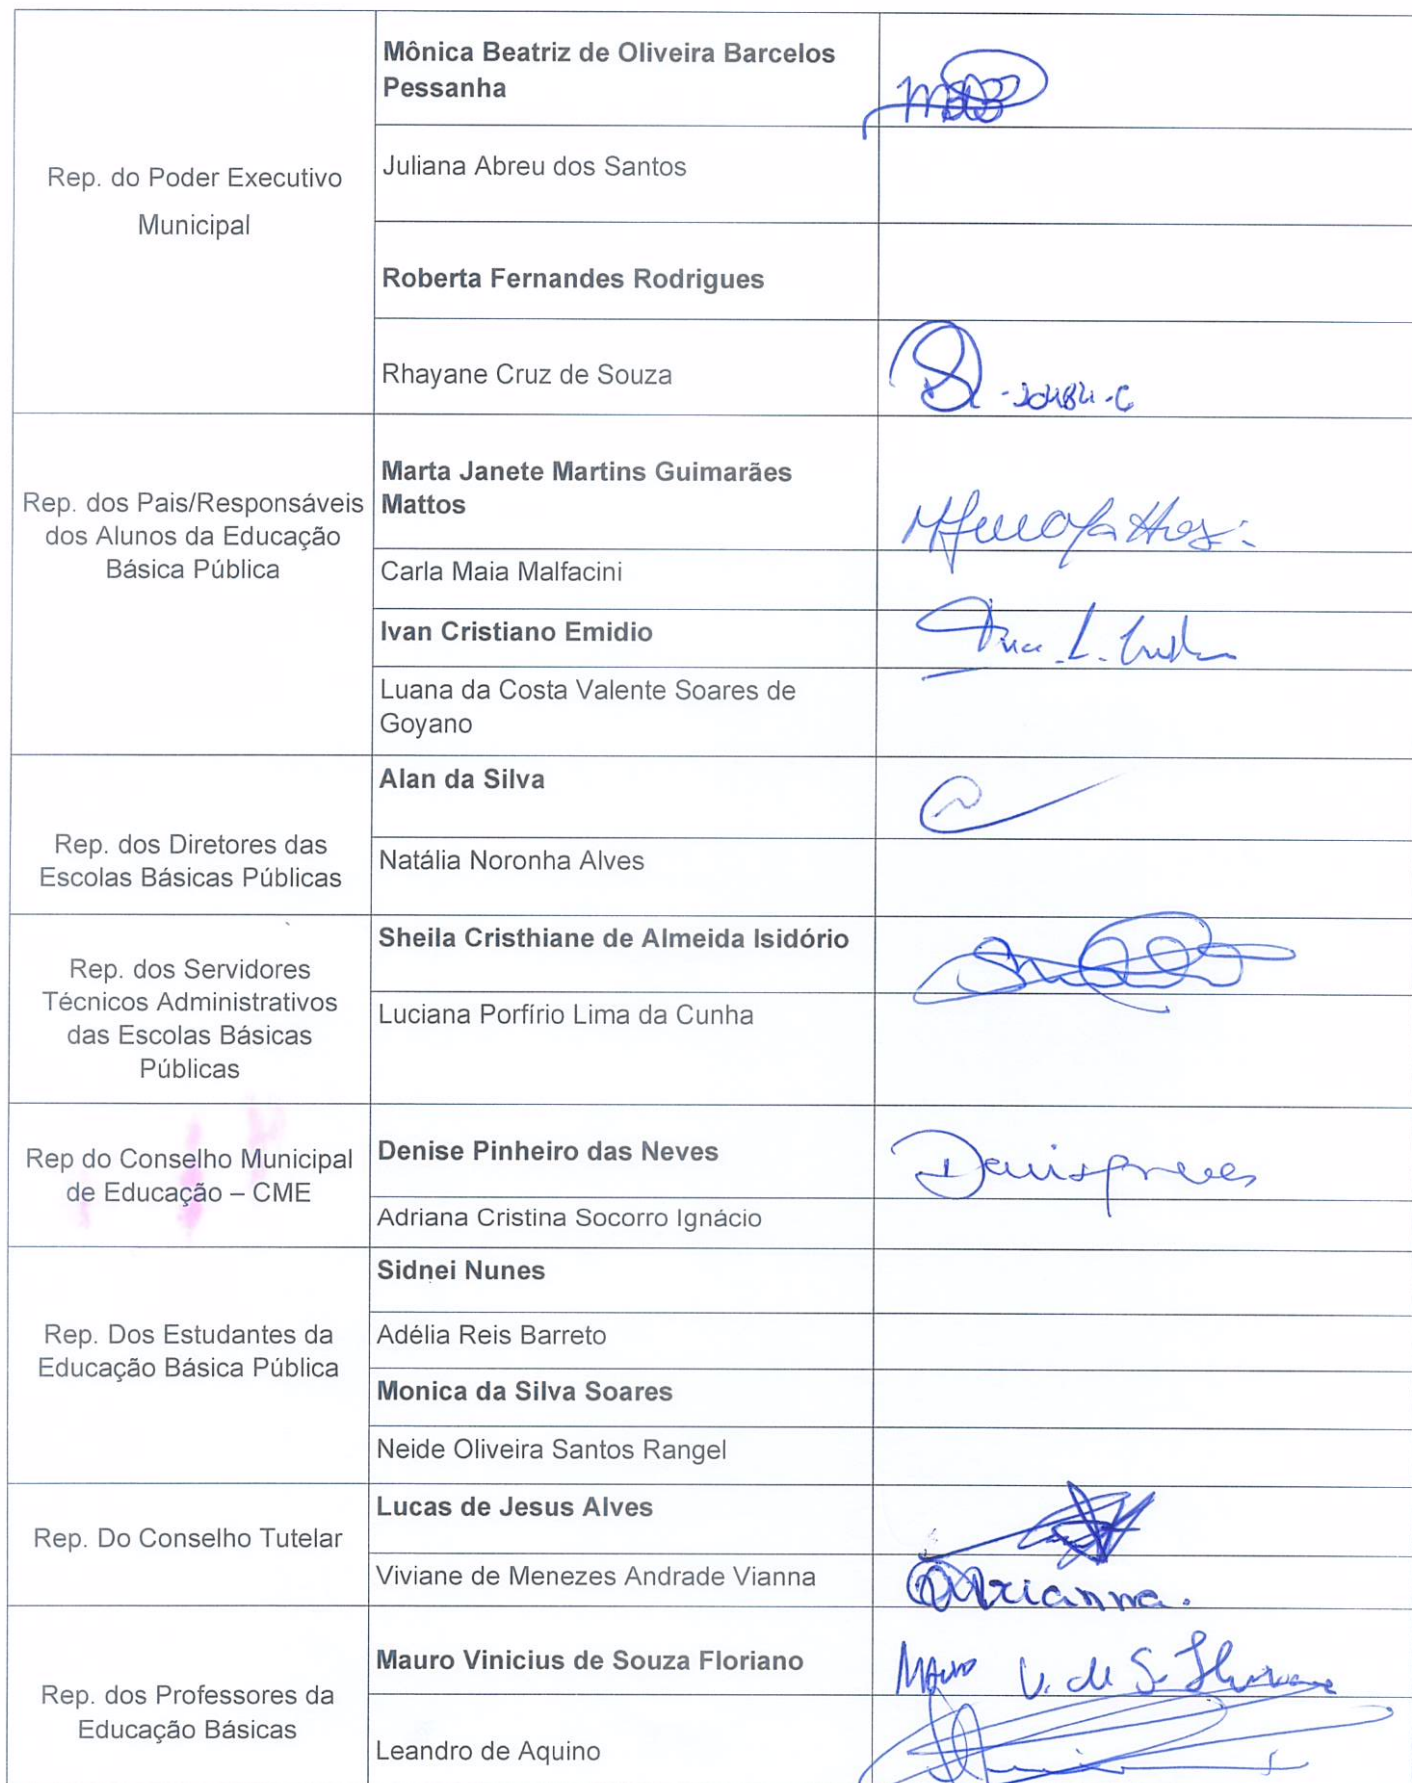 Mônica Beatriz de Oliveira Barcelos
Pessanha
Rep. do Poder Executivo
Municipal
Juliana Abreu dos Santos
Roberta Fernandes Rodrigues
Rhayane Cruz de Souza
Rep. dos Pais/Responsáveis
dos Alunos da Educação
Básica Pública
Marta Janete Martins Guimarães
Mattos
Carla Maia Malfacini
Ivan Cristiano Emidio
Luana da Costa Valente Soares de
Goyano
Rep. dos Diretores das
Escolas Básicas Públicas
Alan da Silva
Natália Noronha Alves
Rep. dos Servidores
Técnicos Administrativos
das Escolas Básicas
Públicas
Sheila Cristhiane de Almeida Isidório
Luciana Porfírio Lima da Cunha
Rep do Conselho Municipal
de Educação – CME
Denise Pinheiro das Neves
Adriana Cristina Socorro Ignácio
Rep. Dos Estudantes da
Educação Básica Pública
Sidnei Nunes
Adélia Reis Barreto
Monica da Silva Soares
Neide Oliveira Santos Rangel
Rep. Do Conselho Tutelar
Lucas de Jesus Alves
Viviane de Menezes Andrade Vianna
Rep. dos Professores da
Educação Básicas
Mauro Vinicius de Souza Floriano
Mauro V. de S. Floriano
Leandro de Aquino